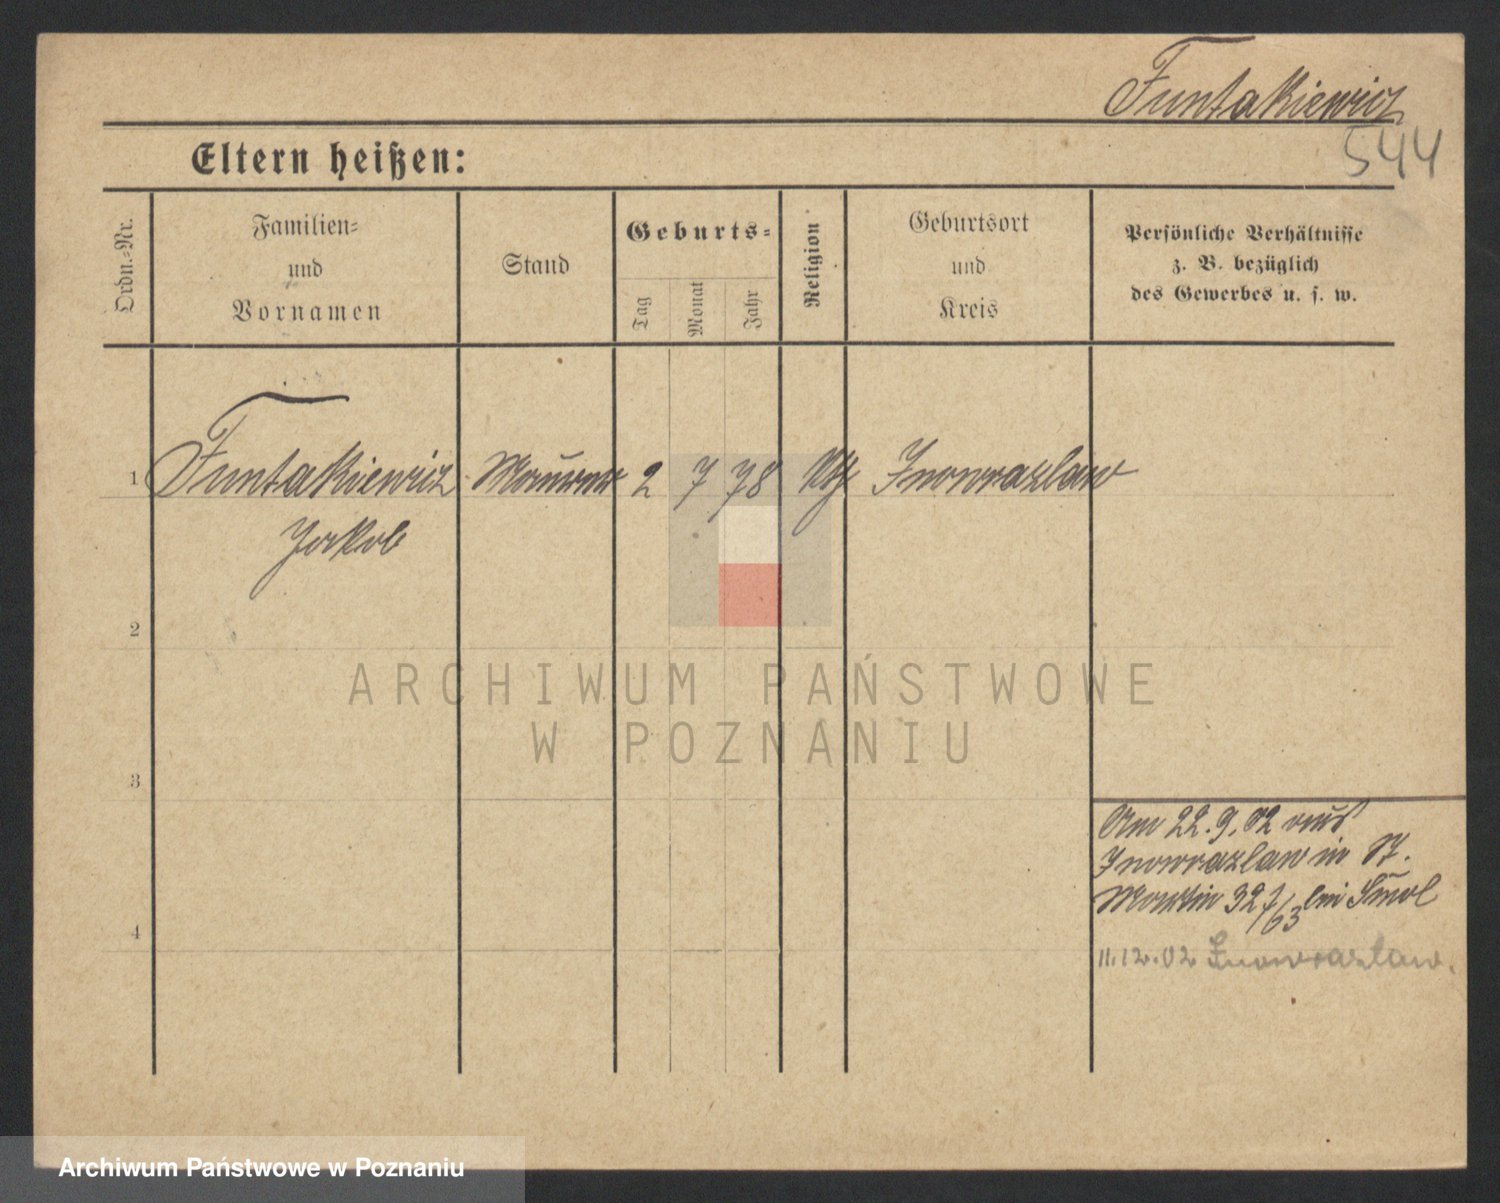 Funtakiewicz
544
Eltern heißen:
Ordn.-Nr.
Familien-
und
Vornamen
Stand
Geburts-
Tag
Monat
Jahr
Religion
Geburtsort
und
Kreis
Persönliche Verhältnisse
z. B. bezüglich
des Gewerbes u. s. w.
1 Funtakiewicz Maurer 2 7 78 kth Inowrazlaw
Jakob
2
3
4
Am 22.9.02 aus
Inowrazlaw in St.
Martin 32 bei
11.12.02 Inowrazlaw.
ARCHIWUM PAŃSTWOWE
W POZNANIU
Archiwum Państwowe w Poznaniu